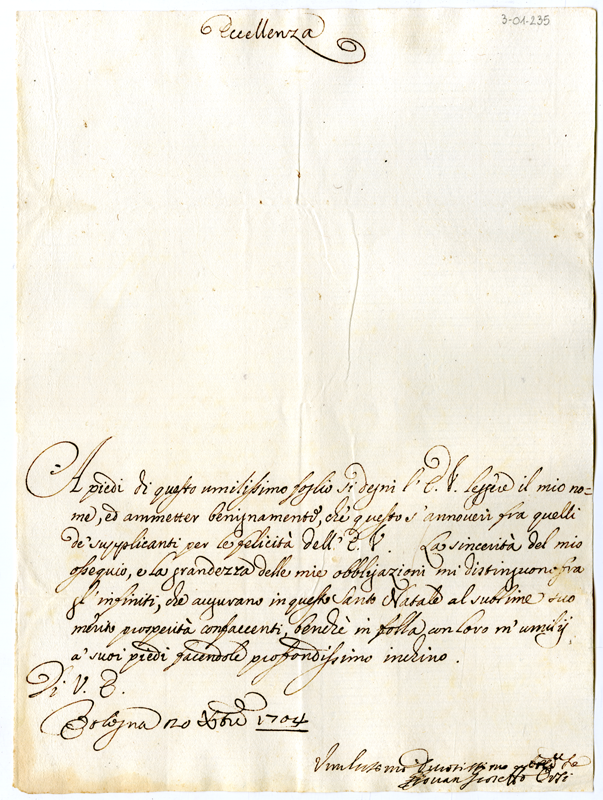 3-01-235
Eccellenza
A piedi di questo umilissimo foglio si degni l'E. V. leggere il mio no=
me, ed ammetter benignamente, che questo s'annoveri fra quelli
de' supplicanti per le felicità dell'E. V. La sincerità del mio
ossequio, e la grandezza delle mie obbligazioni mi distinguono fra
gl'infiniti, che augurano in questo Santo Natale al sublime suo
merito prosperità confaccenti, benchè in folla con loro m'umilij
a' suoi piedi facendole profondissimo inchino.
Di V. E.
Bologna 20 Xbre 1704
Umilissimo Devotissimo
Giovan Orsi